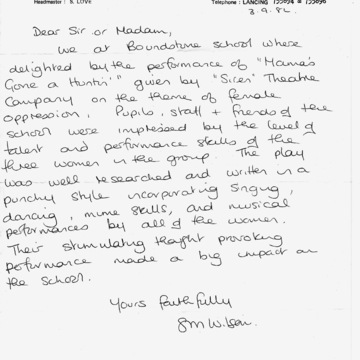 Headmaster : S. LOVE
Telephone : LANCING
3.9.82.
Dear Sir or Madam,
We at Boundstone school where
delighted by the performance of "Mama's
Gone a Huntin'" given by "Siren" Theatre
Company on the theme of female
oppression. Pupils, staff + friends of the
school were impressed by the level of
talent and performance skills of the
three women in the group. The play
was well researched and written in a
punchy style incorporating singing,
dancing, mime skills, and musical
performances by all of the women.
Their stimulating thought provoking
performance made a big impact on
the school.
Yours faithfully